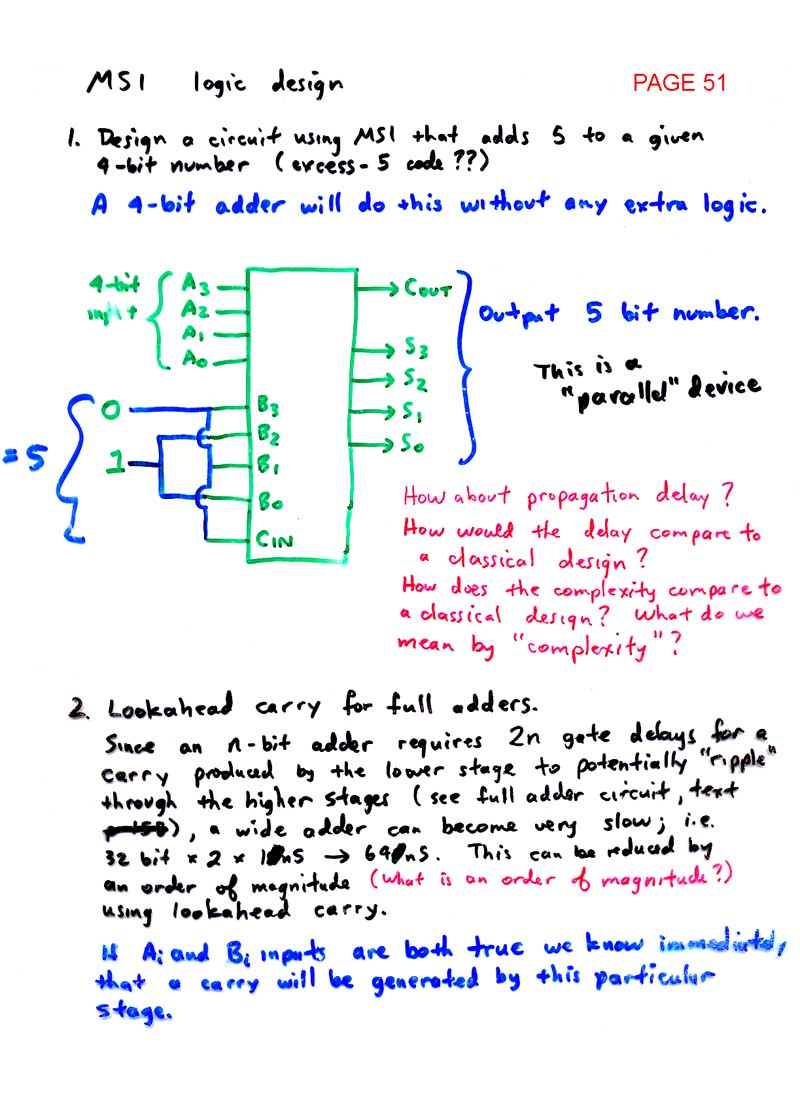 MSI logic design
PAGE 51
1. Design a circuit using MSI that adds 5 to a given
4-bit number (excess-5 code ??)
A 4-bit adder will do this without any extra logic.
4-bit
input
A3
A2
A1
A0
0
1
= 5
B3
B2
B1
B0
CIN
COUT
S3
S2
S1
S0
Output 5 bit number.
This is a
"parallel" device
How about propagation delay?
How would the delay compare to
a classical design?
How does the complexity compare to
a classical design? What do we
mean by "complexity"?
2. Lookahead carry for full adders.
Since an n-bit adder requires 2n gate delays for a
carry produced by the lower stage to potentially "ripple"
through the higher stages (see full adder circuit, text
), a wide adder can become very slow; i.e.
32 bit x 2 x 1nS → 64nS. This can be reduced by
an order of magnitude (What is an order of magnitude?)
using lookahead carry.
If Ai and Bi inputs are both true we know immediately,
that a carry will be generated by this particular
stage.